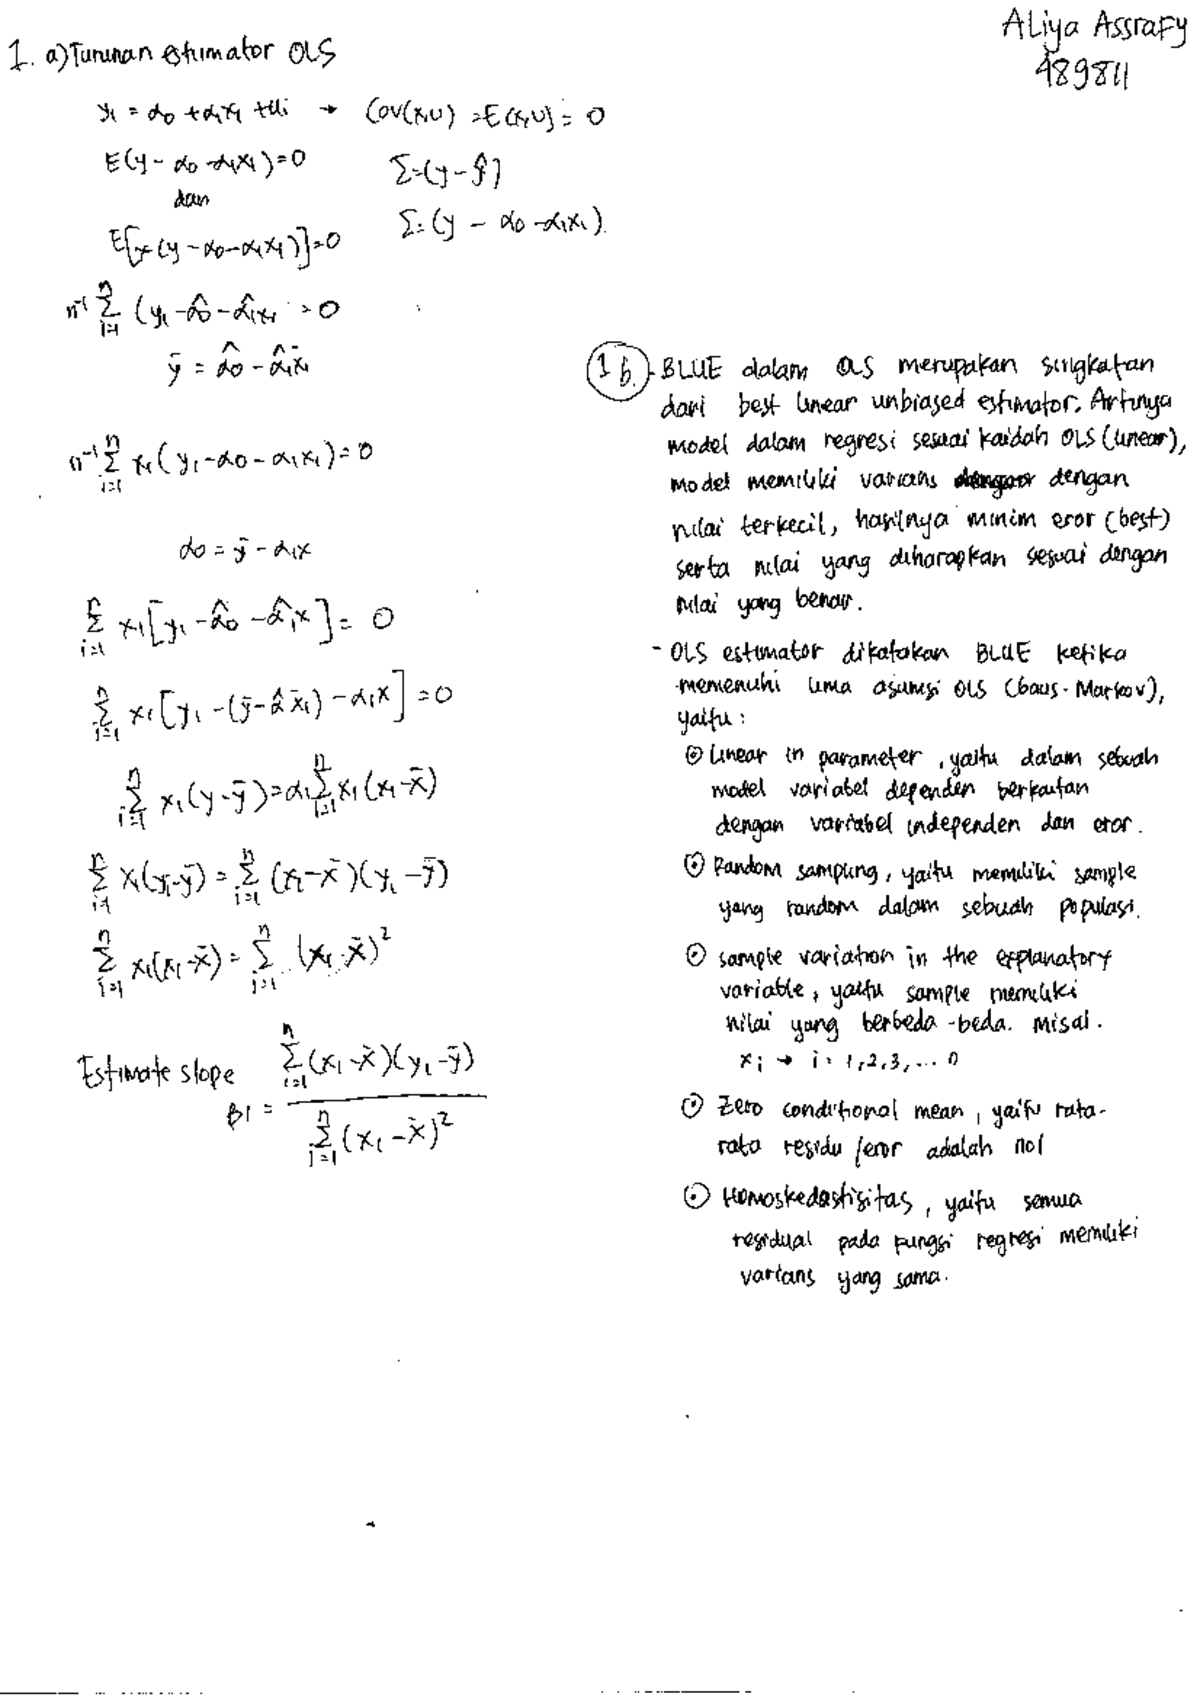 Aliya Assrafy
489811
1. a) Turunan estimator OLS
y₁ = α₀ + α₁x₁ + ui → Cov(x,u) = E(x,u) = 0
E(y - α₀ - α₁x₁) = 0
dan
E[x(y - α₀ - α₁x₁)] = 0
Σ = (y - ŷ)
Σ = (y - α₀ - α₁x₁).
n⁻¹ Σⁿᵢ₌₁ (y₁ - α̂₀ - α̂₁x₁ = 0
ȳ = α̂₀ - α̂₁x̄₁
n⁻¹ Σⁿᵢ₌₁ x₁(y₁ - α₀ - α₁x₁) = 0
α₀ = ȳ - α₁x
Σⁿᵢ₌₁ x₁[y₁ - α̂₀ - α̂₁x] = 0
Σⁿᵢ₌₁ x₁[y₁ - (ȳ - α̂x̄₁) - α₁x] = 0
Σⁿᵢ₌₁ x₁(y - ȳ) = α₁ Σⁿᵢ₌₁ x₁(x₁ - x̄)
Σⁿᵢ₌₁ x₁(y₁ - ȳ) = Σⁿᵢ₌₁ (x₁ - x̄)(y₁ - ȳ)
Σⁿᵢ₌₁ x₁(x₁ - x̄) = Σⁿᵢ₌₁ (x₁ - x̄)²
Estimate slope
β1 = Σⁿᵢ₌₁ (x₁ - x̄)(y₁ - ȳ) / Σⁿᵢ₌₁ (x₁ - x̄)²
1 b. - BLUE dalam OLS merupakan singkatan
dari best linear unbiased estimator. Artinya
model dalam regresi sesuai kaidah OLS (linear),
model memiliki varians dengan
nilai terkecil, hasilnya minim eror (best)
serta nilai yang diharapkan sesuai dengan
nilai yang benar.
- OLS estimator dikatakan BLUE ketika
memenuhi lima asumsi OLS (Gaus-Markov),
yaitu :
⊙ Linear in parameter , yaitu dalam sebuah
model variabel dependen berkaitan
dengan variabel independen dan eror.
⊙ Random sampling, yaitu memiliki sample
yang random dalam sebuah populasi.
⊙ sample variation in the explanatory
variable, yaitu sample memiliki
nilai yang berbeda-beda. Misal.
xᵢ → i = 1,2,3,... n
⊙ Zero conditional mean, yaitu rata-
rata residu/eror adalah nol
⊙ Homoskedastisitas, yaitu semua
residual pada fungsi regresi memiliki
varians yang sama.